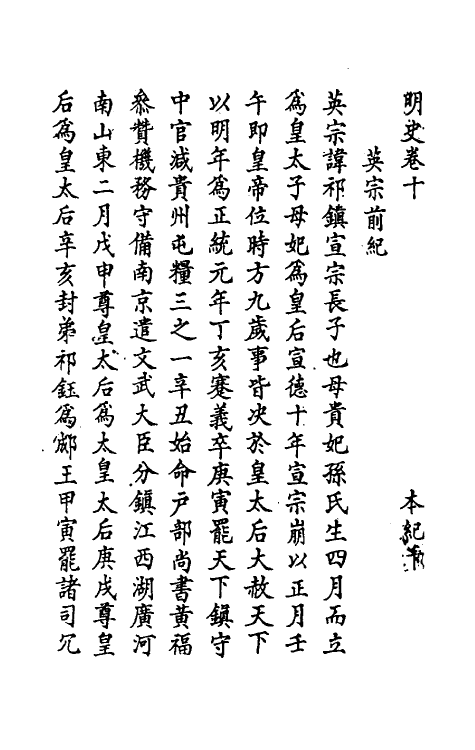 明史卷十　本紀第
英宗前紀
英宗諱祁鎮宣宗長子也母貴妃孫氏生四月而立
爲皇太子母妃爲皇后宣德十年宣宗崩以正月壬
午即皇帝位時方九歲事皆決於皇太后大赦天下
以明年爲正統元年丁亥蹇義卒庚寅罷天下鎮守
中官減貴州屯糧三之一辛丑始命戸部尚書黃福
叅贊機務守備南京遣文武大臣分鎮江西湖廣河
南山東二月戊申尊皇太后爲太皇太后庚戌尊皇
后爲皇太后辛亥封弟祁鈺爲郕王甲寅罷諸司冗